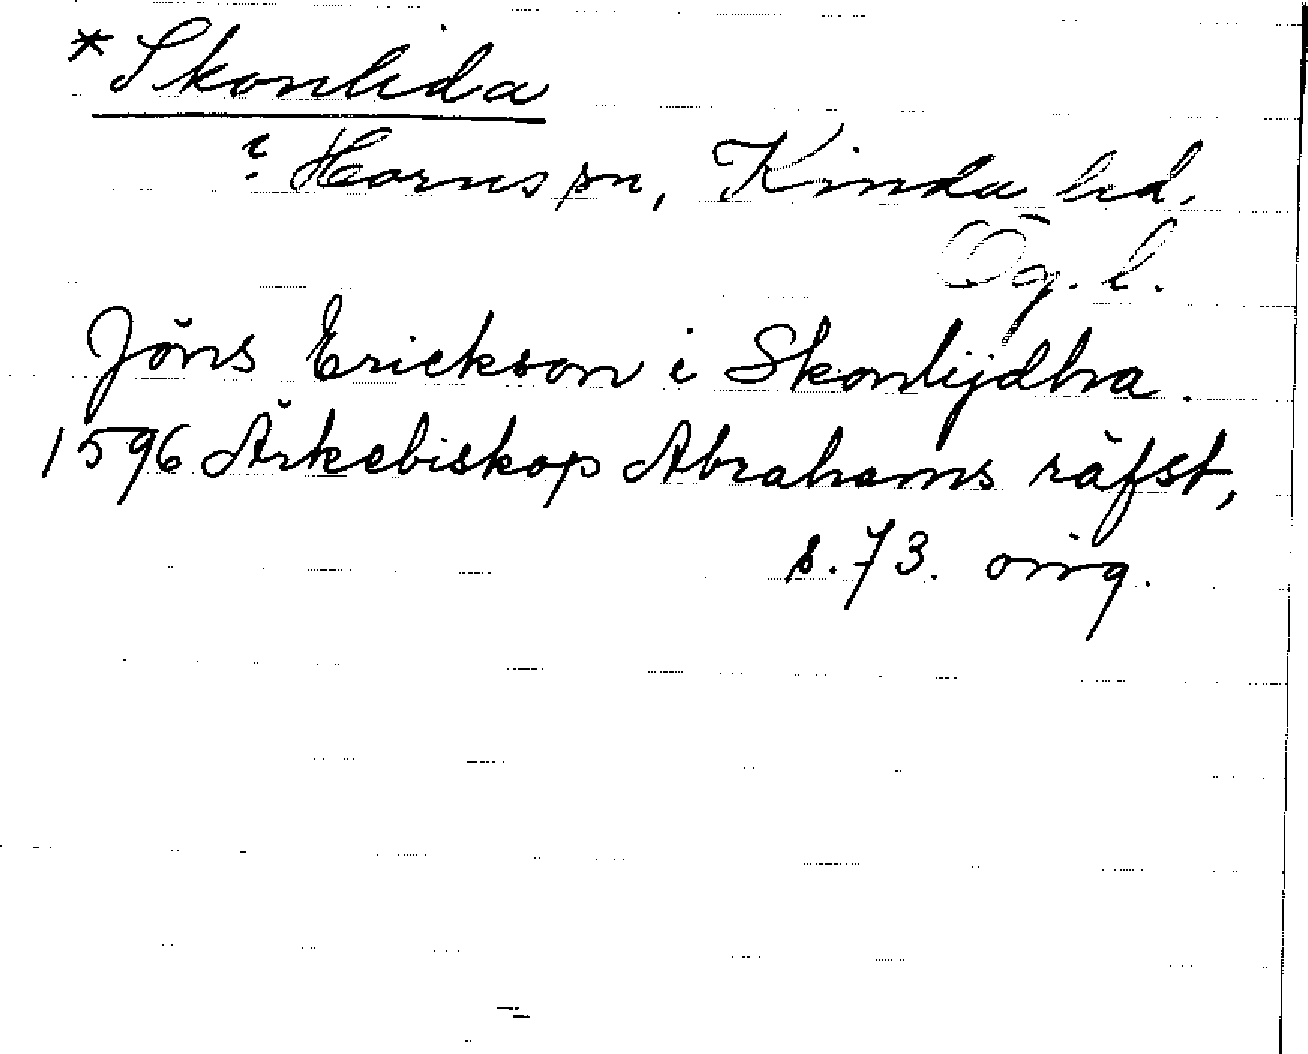 *Skonlida
? Horns sn, Kinda hd.
Ög. l.
Jöns Erickson i Skonlijdha.
1596 Ärkebiskop Abrahams räfst,
s. 73. orig.